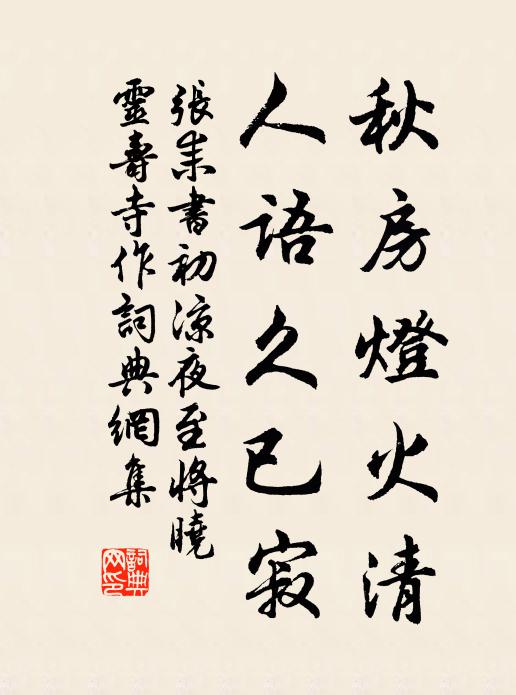 秋房燈火清
人語久已寂
張耒書初涼夜至將曉
靈壽寺作詞典網集
詞典網印